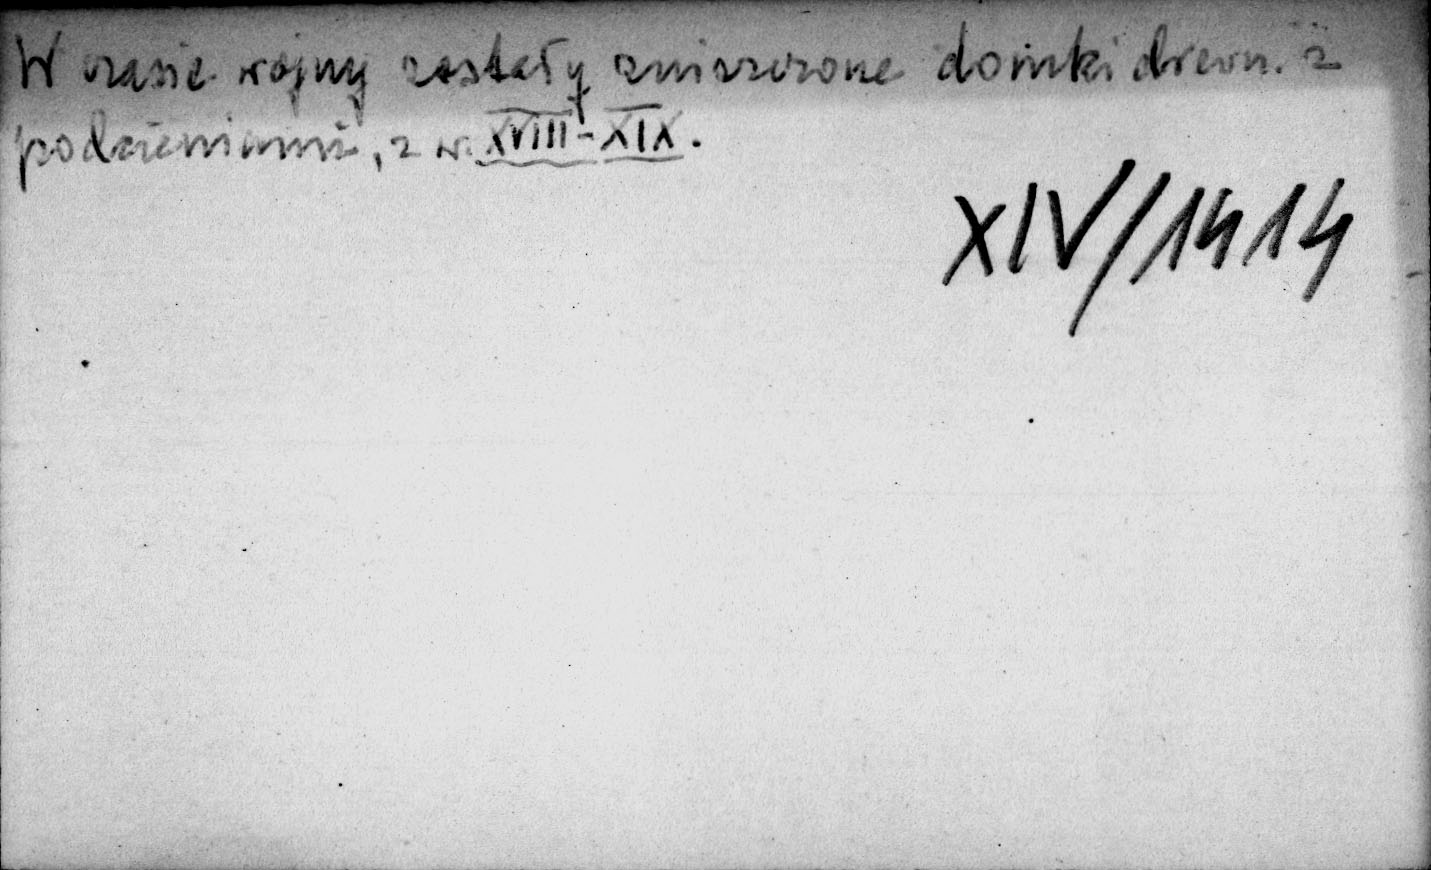 W czasie wojny zostały zniszczone domki drewn. z
podcieniami, z w. XVIII-XIX.
XIV/1414